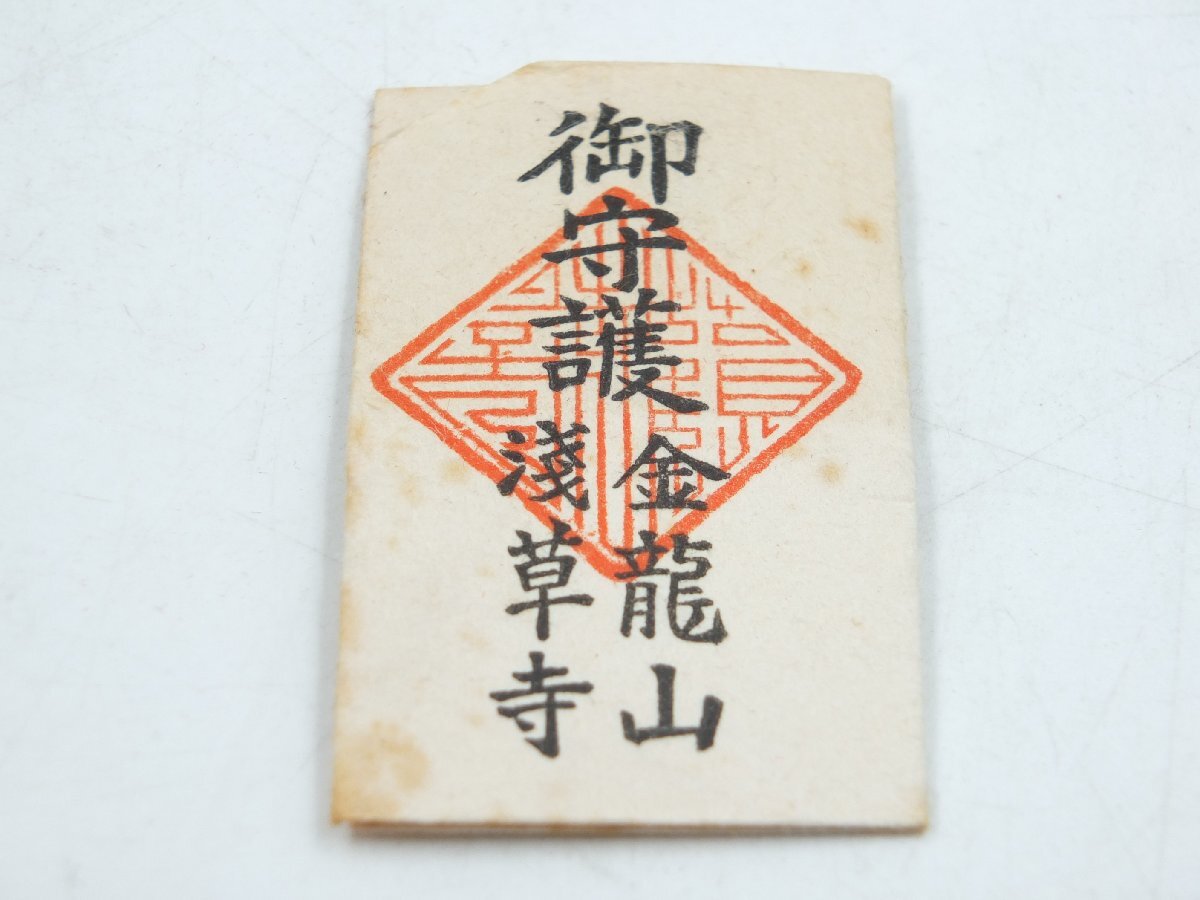 御守護
金龍山
淺草寺